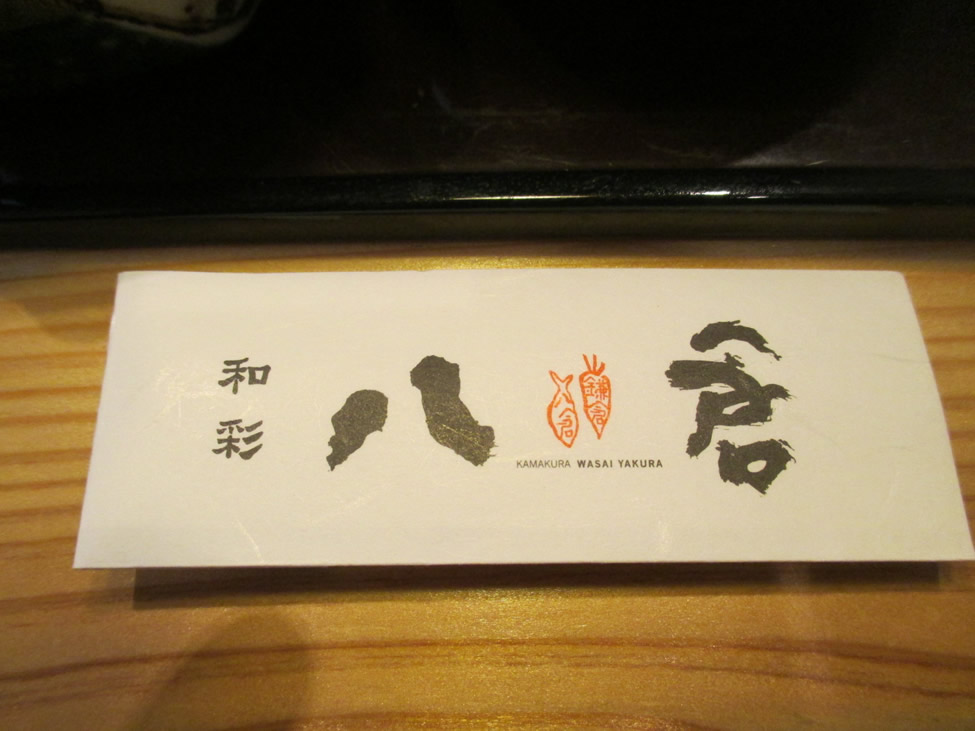 和彩
八倉
八倉
鎌倉
KAMAKURA WASAI YAKURA